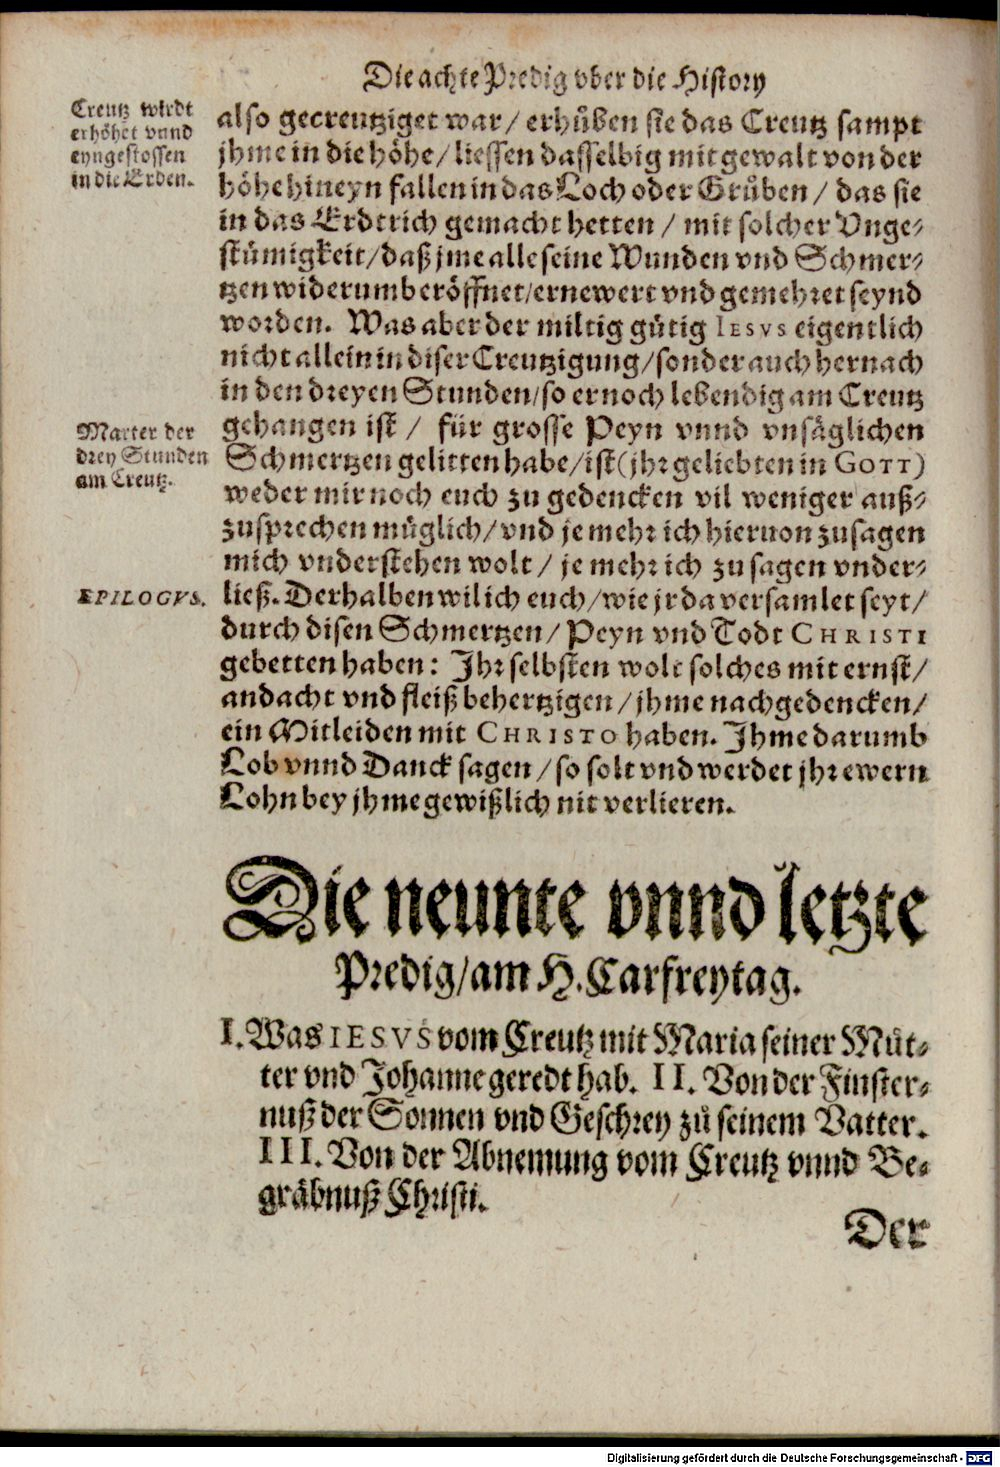 Die achte Predig vber die History
Creutz wirdt
erhöhet vnnd
eyngestossen
in die Erden.
also gecreutziget war / erhůben sie das Creutz sampt
jhme in die höhe / liessen dasselbig mit gewalt von der
höhe hineyn fallen in das Loch oder Grůben / das sie
in das Erdtrich gemacht hetten / mit solcher Vnge-
stümigkeit / daß jme alle seine Wunden vnd Schmer-
tzen widerumb eröffnet / ernewert vnd gemehret seynd
worden. Was aber der miltig gütig IESVS eigentlich
nicht allein in diser Creutzigung / sonder auch hernach
in den dreyen Stunden / so er noch lebendig am Creutz
gehangen ist / für grosse Peyn vnnd vnsäglichen
Marter der
drey Stunden
am Creutz.
Schmertzen gelitten habe / ist (jhr geliebten in GOTT)
weder mir noch euch zu gedencken vil weniger auß-
zusprechen müglich / vnd je mehr ich hieruon zusagen
mich vnderstehen wolt / je mehr ich zu sagen vnder-
EPILOGVS.
ließ. Derhalben wil ich euch / wie jr da versamlet seyt /
durch disen Schmertzen / Peyn vnd Todt CHRISTI
gebetten haben: Jhr selbsten wolt solches mit ernst /
andacht vnd fleiß behertzigen / jhme nachgedencken /
ein Mitleiden mit CHRISTO haben. Jhme darumb
Lob vnnd Danck sagen / so solt vnd werdet jhr ewern
Lohn bey jhme gewißlich nit verlieren.
Die neunte vnnd letzte
Predig / am H. Carfreytag.
I. Was IESVS vom Creutz mit Maria seiner Můt-
ter vnd Johanne geredt hab. II. Von der Finster-
nuß der Sonnen vnd Geschrey zů seinem Vatter.
III. Von der Abnemung vom Creutz vnnd Be-
gräbnuß Christi.
Der
Digitalisierung gefördert durch die Deutsche Forschungsgemeinschaft - DFG